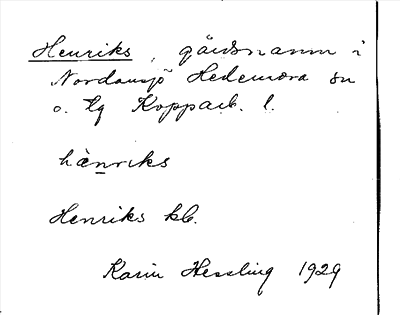 Henriks, gårdsnamn i
Nordansjö Hedemora sn
o. tg Kopparb. l.
hä̀nriks
Henriks kb.
Karin Hessling 1929